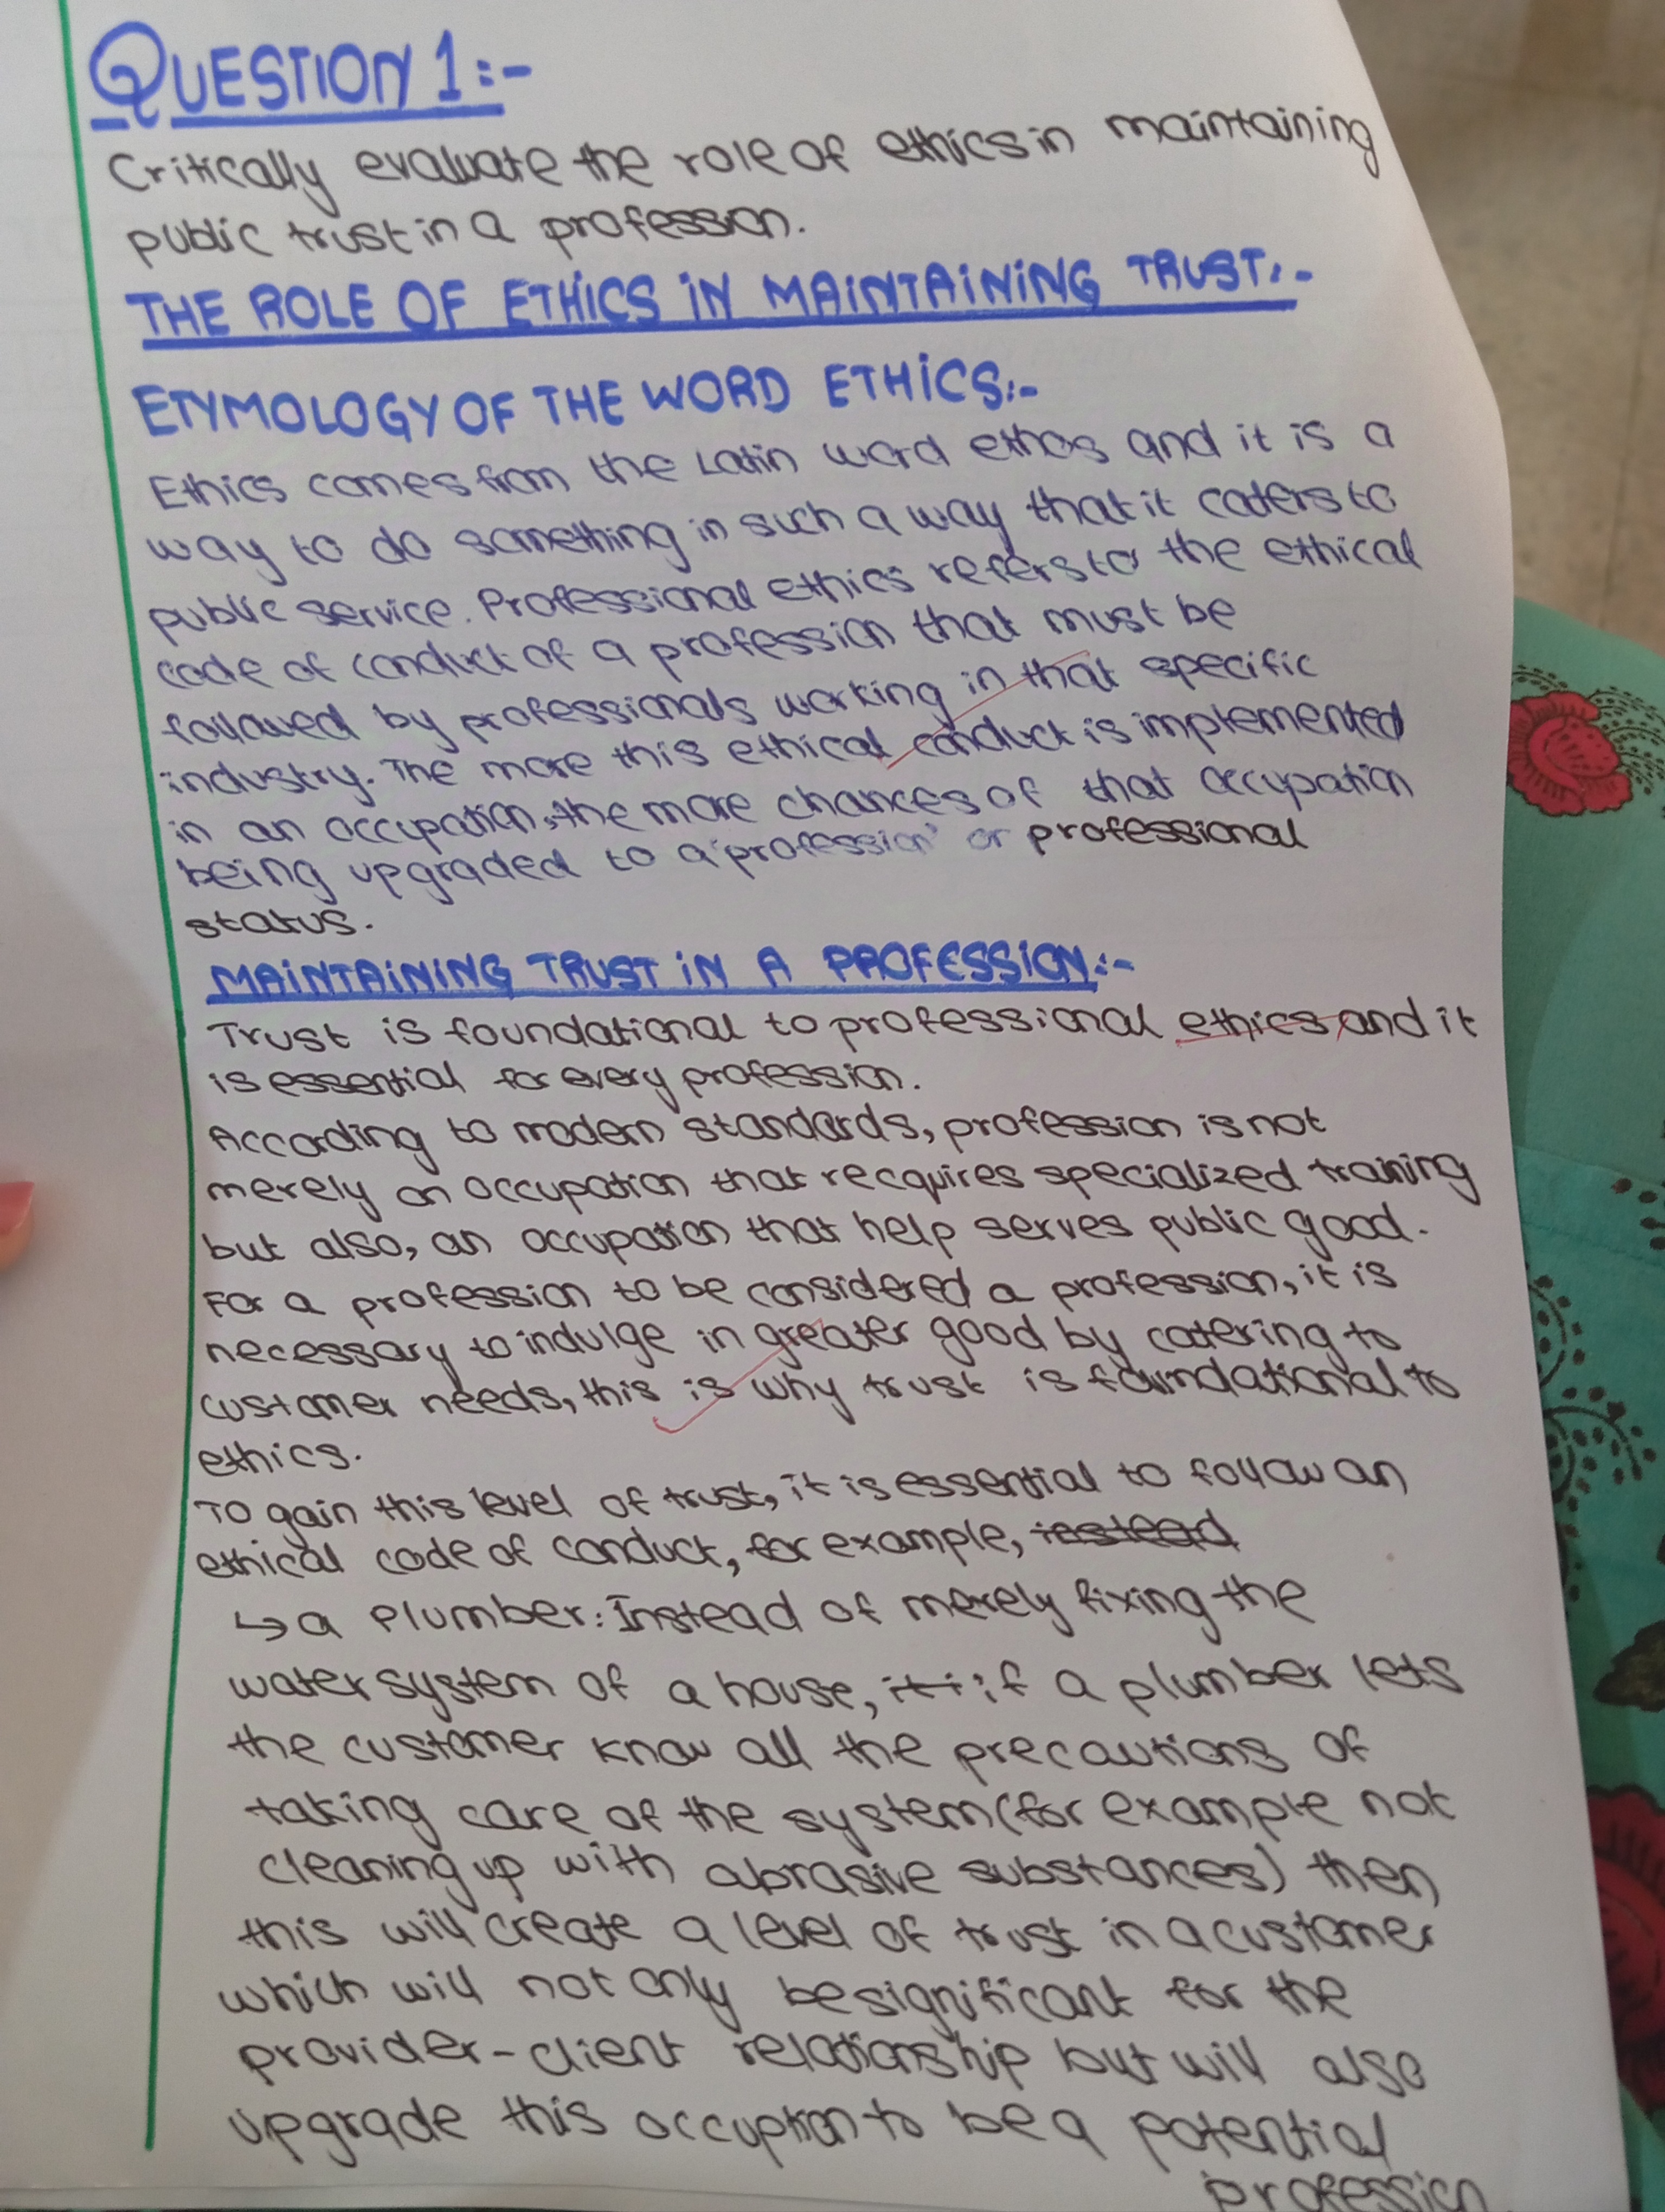 QUESTION 1:-
Critically evaluate the role of ethics in maintaining
public trust in a profession.
THE ROLE OF ETHICS IN MAINTAINING TRUST:-
ETYMOLOGY OF THE WORD ETHICS:-
Ethics comes from the Latin word ethos and it is a
way to do something in such a way that it caters to
public service. Professional ethics refers to the ethical
code of conduct of a profession that must be
followed by professionals working in that specific
industry. The more this ethical conduct is implemented
in an occupation, the more chances of that occupation
being upgraded to a 'profession' or professional
status.
MAINTAINING TRUST IN A PROFESSION:-
Trust is foundational to professional ethics and it
is essential for every profession.
According to modern standards, profession is not
merely an occupation that recquires specialized training
but also, an occupation that help serves public good.
For a profession to be considered a profession, it is
necessary to indulge in greater good by catering to
customer needs, this is why trust is foundational to
ethics.
To gain this level of trust, it is essential to follow an
ethical code of conduct, for example, instead
↳ a plumber: Instead of merely fixing the
water system of a house, if a plumber lets
the customer know all the precautions of
taking care of the system (for example not
cleaning up with abrasive substances) then
this will create a level of trust in a customer
which will not only be significant for the
provider-client relationship but will also
upgrade this occuption to be a potential
profession